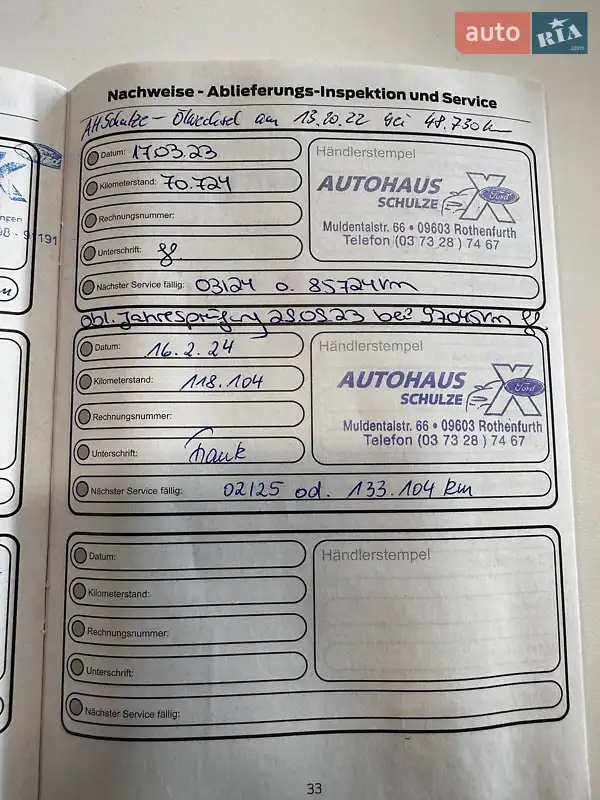 auto RIA .com
Nachweise - Ablieferungs-Inspektion und Service
AH Schulze - Ölwechsel am 13.10.22 bei 48.730km
Datum: 17.03.23
Kilometerstand: 70.724
Rechnungsnummer:
Unterschrift:
Nächster Service fällig: 03/24 o. 85724km
Händlerstempel
AUTOHAUS
SCHULZE
Ford
Muldentalstr. 66 • 09603 Rothenfurth
Telefon (03 73 28) 74 67
obl. Jahresprüfung 29.09.23 bei 97045km
Datum: 16.2.24
Kilometerstand: 118.104
Rechnungsnummer:
Unterschrift: Frank
Nächster Service fällig: 02/25 od. 133.104 km
Händlerstempel
AUTOHAUS
SCHULZE
Ford
Muldentalstr. 66 • 09603 Rothenfurth
Telefon (03 73 28) 74 67
Datum:
Kilometerstand:
Rechnungsnummer:
Unterschrift:
Nächster Service fällig:
Händlerstempel
33